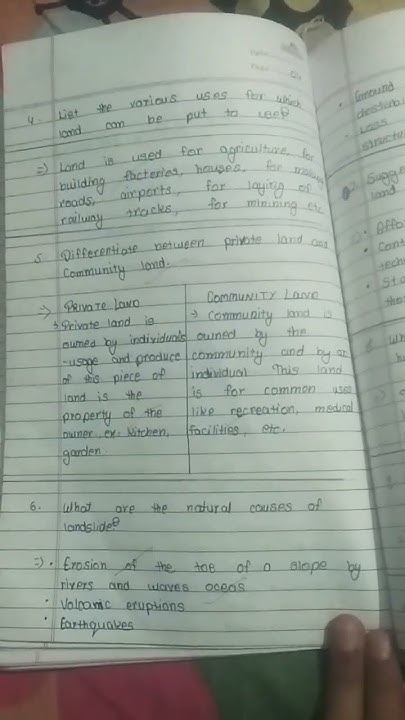 4. List the various uses for which
land can be put to use?
=> Land is used for agriculture, for
building factories, houses, for making
roads, airports, for laying of
railway tracks, for minining etc
5. Differentiate between private land and
Community land.
=> PRIVATE LAND
Private land is
owned by individuals
-usage and produce
of this piece of
land is the
property of the
owner. ex- kitchen,
garden
COMMUNITY LAND
→ Community land is
owned by the
community and by an
individual This land
is for common uses
like recreation, medical
facilities, etc.
6. What are the natural causes of
landslide?
=> • Erosion of the toe of a slope by
rivers and waves oceas
• Volcanic eruptions
• Earthquakes
• Ground
• Loss
Sugge
land